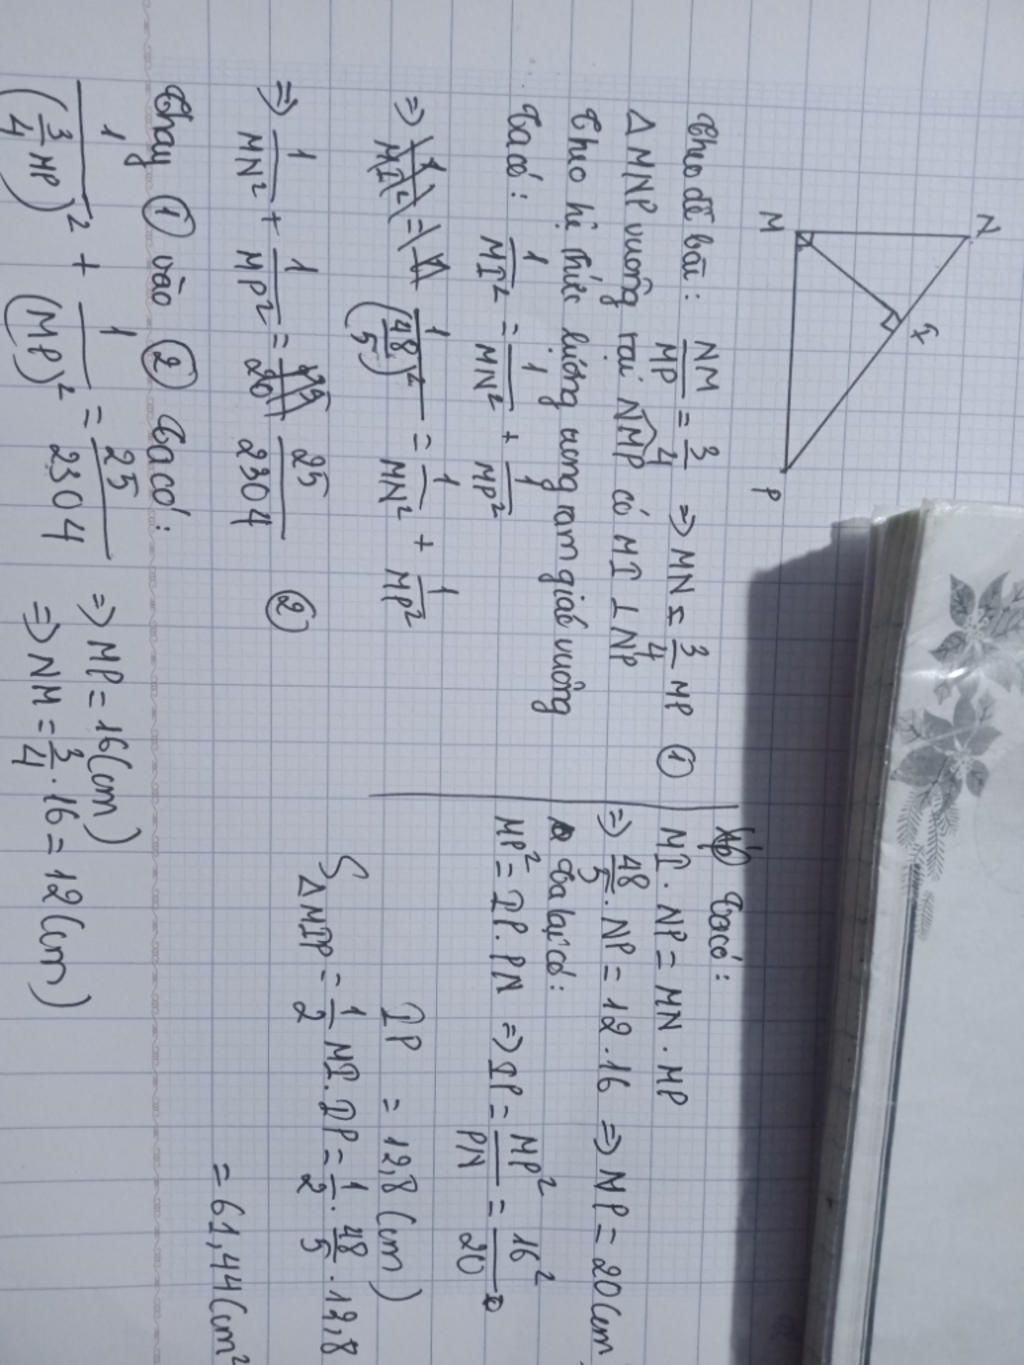 N
M
I
P
Theo đề bài: NM/MP = 3/4 => MN = 3/4 MP ①
Δ MNP vuông tại NMP có MI ⊥ NP
Theo hệ thức lượng trong tam giác vuông
Ta có: 1/MI² = 1/MN² + 1/MP²
=> 1/(48/5)² = 1/MN² + 1/MP²
=> 1/MN² + 1/MP² = 25/2304 ②
Thay ① vào ② ta có:
1/(3/4 MP)² + 1/(MP)² = 25/2304
=> MP = 16(cm)
=> NM = 3/4 . 16 = 12(cm)
Ta có:
MI . NP = MN . MP
=> 48/5 . NP = 12 . 16 => NP = 20(cm
Ta lại có:
MP² = IP . PN => IP = MP²/PN = 16²/20
IP = 12,8(cm)
S Δ MIP = 1/2 MI . IP = 1/2 . 48/5 . 12,8
= 61,44(cm²